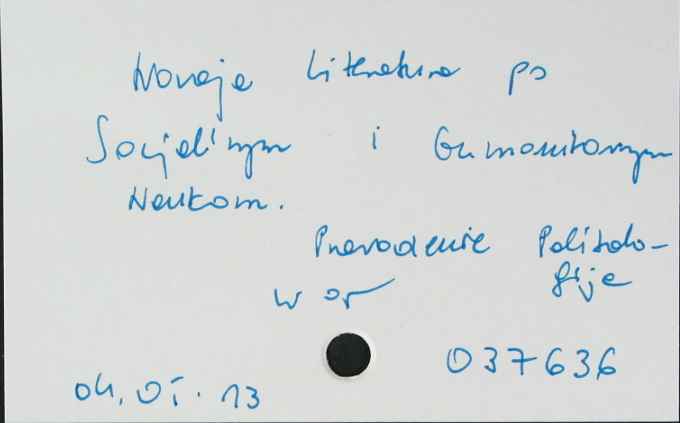 Novaja Literatura po
Social'nym i Gumanitarnym
Naukam.
Pravovedenie Politolo-
gije
037636
04. 01. 13